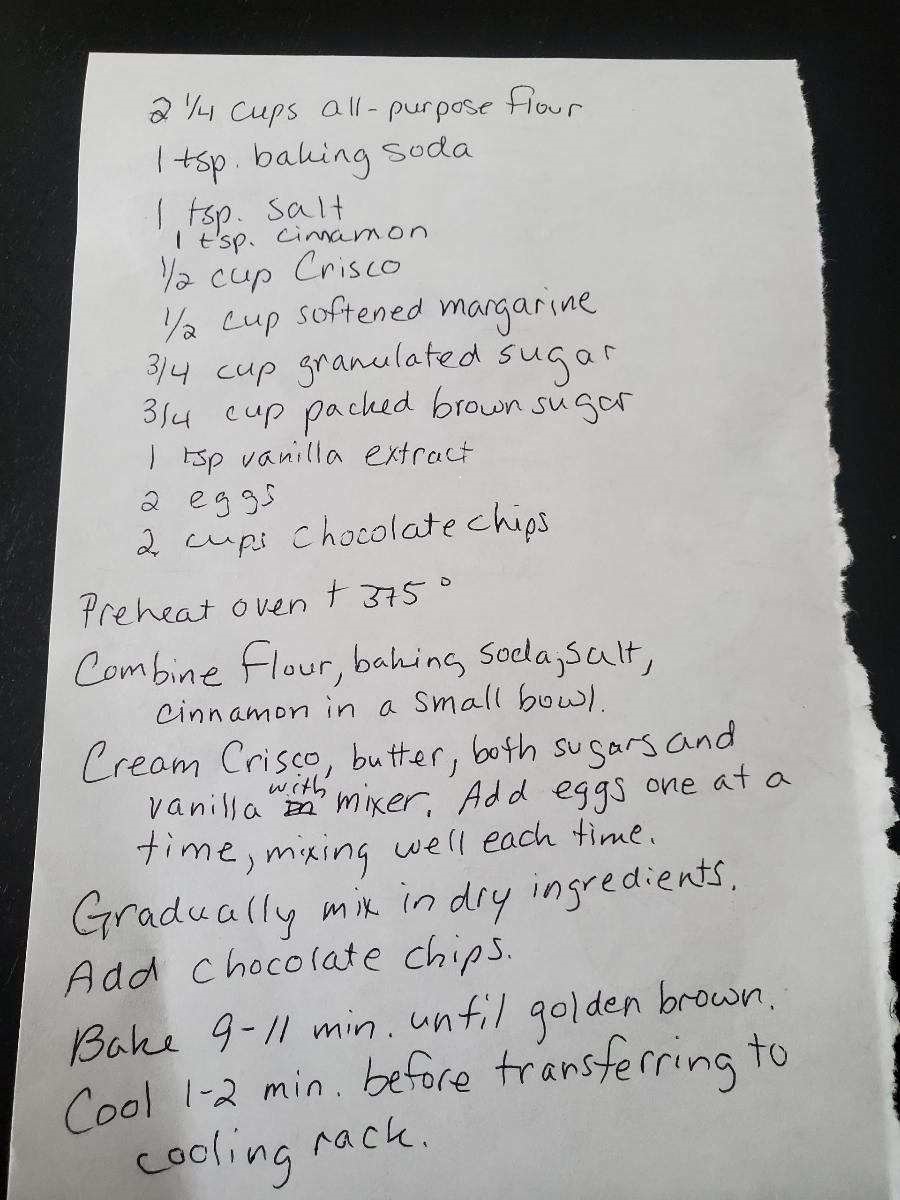 2 1/4 cups all-purpose flour
1 tsp. baking soda
1 tsp. salt
1 tsp. cinnamon
1/2 cup Crisco
1/2 cup softened margarine
3/4 cup granulated sugar
3/4 cup packed brown sugar
1 tsp vanilla extract
2 eggs
2 cups chocolate chips
Preheat oven t 375°
Combine flour, baking soda, salt,
cinnamon in a small bowl.
Cream Crisco, butter, both sugars and
vanilla with mixer. Add eggs one at a
time, mixing well each time.
Gradually mix in dry ingredients.
Add chocolate chips.
Bake 9-11 min. until golden brown.
Cool 1-2 min. before transferring to
cooling rack.